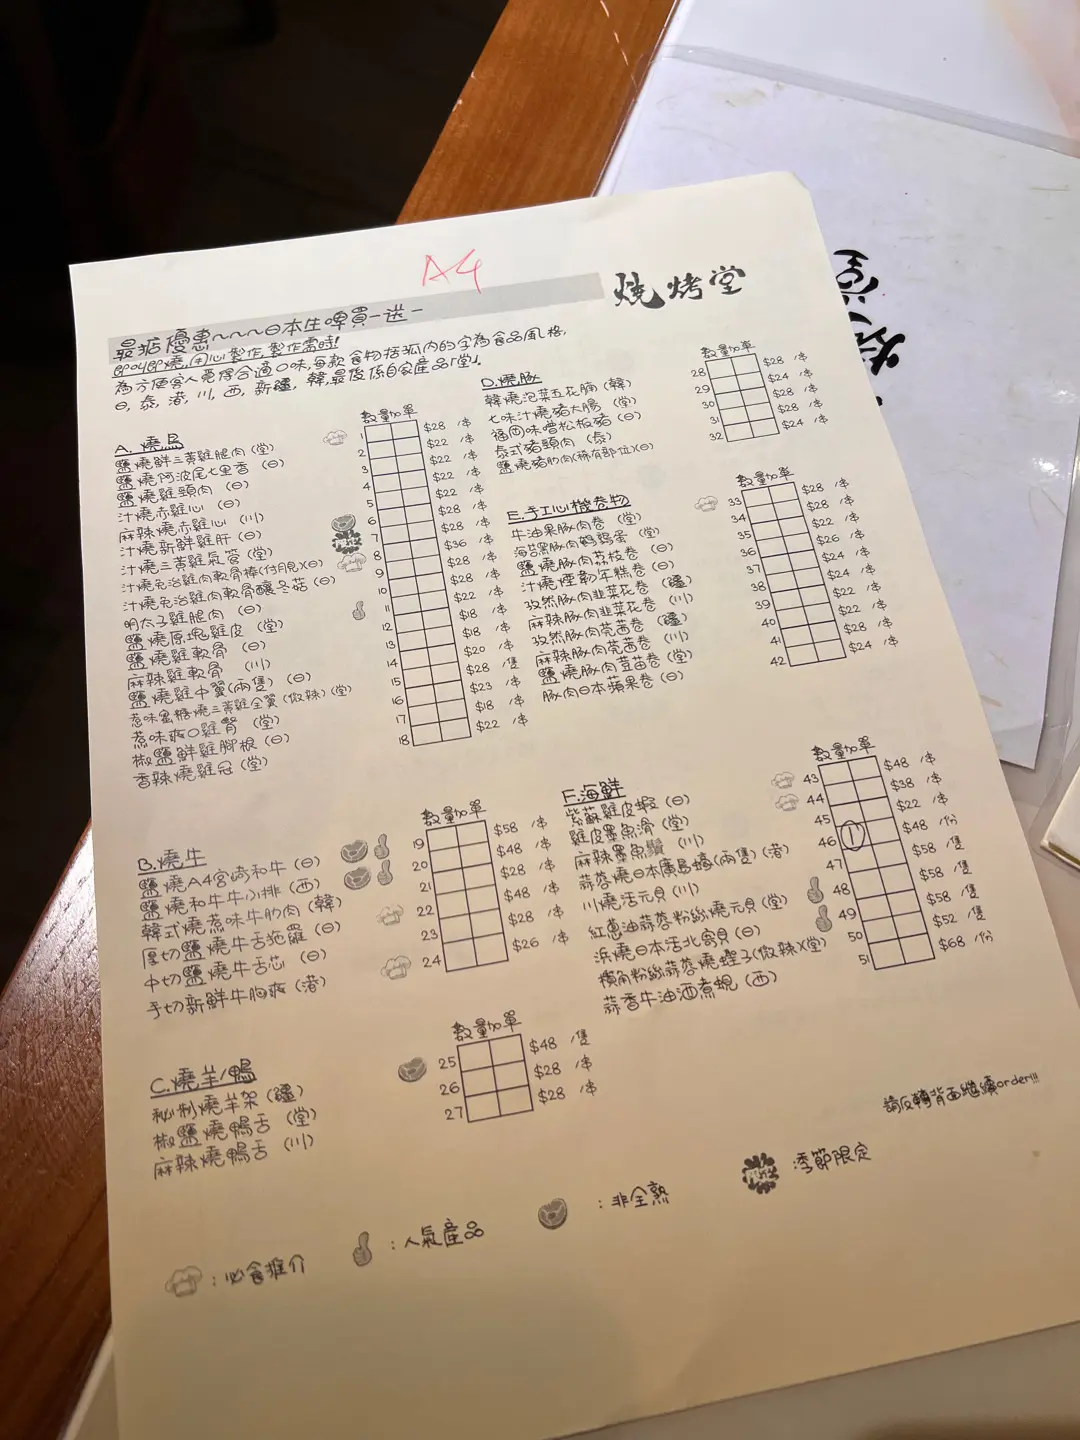 A4
燒烤堂
最抵優惠~~~~日本生啤買一送一
即叫即燒,用心製作,製作需時!
為方便客人覓得合適口味,每款食物括弧內的字為食品風格,
日,泰,港,川,西,新疆,韓,最後係自家產品「堂」.
A. 燒鳥
數量加單
鹽燒鮮三黃雞腿肉 (堂) 1 $28 /串
鹽燒阿波尾七里香 (日) 2 $22 /串
鹽燒雞頸肉 (日) 3 $22 /串
汁燒赤雞心 (日) 4 $22 /串
麻辣燒赤雞心 (川) 5 $22 /串
汁燒新鮮雞肝 (日) 6 $28 /串
汁燒三黃雞氣管 (堂) 7 $28 /串
汁燒免治雞肉軟骨棒(付月見)(日) 8 $36 /串
汁燒免治雞肉軟骨釀冬菇 (日) 9 $28 /串
明太子雞腿肉 (日) 10 $28 /串
鹽燒原塊雞皮 (堂) 11 $22 /串
鹽燒雞軟骨 (日) 12 $18 /串
麻辣雞軟骨 (川) 13 $18 /串
鹽燒雞中翼(兩隻) (日) 14 $20 /串
惹味蜜糖燒三黃雞全翼 (微辣) (堂) 15 $28 /隻
惹味爽口雞腎 (堂) 16 $23 /串
椒鹽鮮雞腳根 (日) 17 $18 /串
香辣燒雞冠 (堂) 18 $22 /串
B. 燒牛
數量加單
鹽燒A4宮崎和牛 (日) 19 $58 /串
鹽燒和牛牛小排 (西) 20 $48 /串
韓式燒惹味牛肋肉 (韓) 21 $28 /串
厚切鹽燒牛舌拖羅 (日) 22 $48 /串
中切鹽燒牛舌芯 (日) 23 $28 /串
手切新鮮牛胸爽 (港) 24 $26 /串
C. 燒羊/鴨
數量加單
秘制燒羊架 (疆) 25 $48 /隻
椒鹽燒鴨舌 (堂) 26 $28 /串
麻辣燒鴨舌 (川) 27 $28 /串
D. 燒豚
數量加單
韓燒泡菜五花腩 (韓) 28 $28 /串
七味汁燒豬大腸 (堂) 29 $24 /串
福岡味噌松板豬 (日) 30 $28 /串
泰式豬頸肉 (泰) 31 $28 /串
鹽燒豬肋肉(稀有部位)(日) 32 $24 /串
E. 手工心機卷物
數量加單
牛油果豚肉卷 (堂) 33 $28 /串
海苔黑豚肉鵪鶉蛋 (堂) 34 $28 /串
鹽燒豚肉荔枝卷 (日) 35 $22 /串
汁燒煙韌年糕卷 (日) 36 $26 /串
孜然豚肉韭菜花卷 (疆) 37 $24 /串
麻辣豚肉韭菜花卷 (川) 38 $24 /串
孜然豚肉莞茜卷 (疆) 39 $22 /串
麻辣豚肉莞茜卷 (川) 40 $22 /串
鹽燒豚肉荳苗卷 (堂) 41 $28 /串
豚肉日本蘋果卷 (日) 42 $24 /串
F. 海鮮
數量加單
紫蘇雞皮蝦 (日) 43 $48 /串
雞皮墨魚滑 (堂) 44 $38 /串
麻辣墨魚鬚 (川) 45 $22 /串
蒜蓉燒日本廣島蠔(兩隻) (港) 46 1 $48 /份
川燒活元貝 (川) 47 $58 /隻
紅蔥油蒜蓉粉絲燒元貝 (堂) 48 $58 /隻
浜燒日本活北寄貝 (日) 49 $58 /隻
橫角粉絲蒜蓉燒蟶子(微辣)(堂) 50 $52 /隻
蒜香牛油酒煮蜆 (西) 51 $68 /份
請反轉背面繼續order!!!
: 必食推介
: 人氣產品
: 非全熟
季節限定